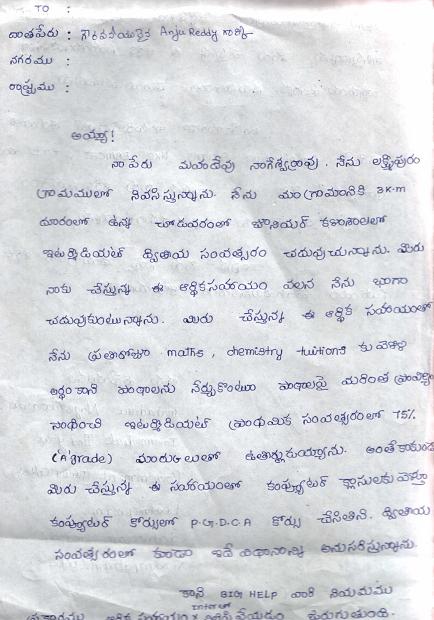 TO :
దాతపేరు : గౌరవనీయులైన Anju Reddy గారికి
నగరము :
రాష్ట్రము :
అయ్యా!
నా పేరు మహదేవు నాగేశ్వరావు. నేను లక్ష్మీపురం
గ్రామములో నివసిస్తున్నాను. నేను మా గ్రామానికి 3k.m
దూరంలో ఉన్న జూనియర్ కళాశాలలో
ఇంటర్మీడియట్ ద్వితీయ సంవత్సరం చదువుచున్నాను. మీరు
నాకు చేస్తున్న ఈ ఆర్థికసహాయం వలన నేను బాగా
చదువుకుంటున్నాను. మీరు చేస్తున్న ఈ ఆర్థిక సహాయంతో
నేను ప్రతిరోజు maths, chemistry tuitions కు వెళ్ళి
అర్థంకాని పాఠాలను నేర్చుకొంటూ పాఠాలపై మరింత
సాధించి ఇంటర్మీడియట్ ప్రాథమిక సంవత్సరంలో 75%
('A' grade) మార్కులతో ఉత్తీర్ణుడయ్యాను. అంతేకాకుండ
మీరు చేస్తున్న ఈ సహాయంతో కంప్యూటర్ క్లాసులకు వెళ్తూ
కంప్యూటర్ కోర్సులో P.G.D.C.A కోర్సు చేసితిని. ద్వితీయ
సంవత్సరంలో కూడా ఇదే విధానాన్ని అనుసరిస్తున్నాను.
కాని BIG HELP వారి నియమము
ప్రకారము ఆర్థిక సహాయం Inter తో చేయడం జరుగుతుంది.